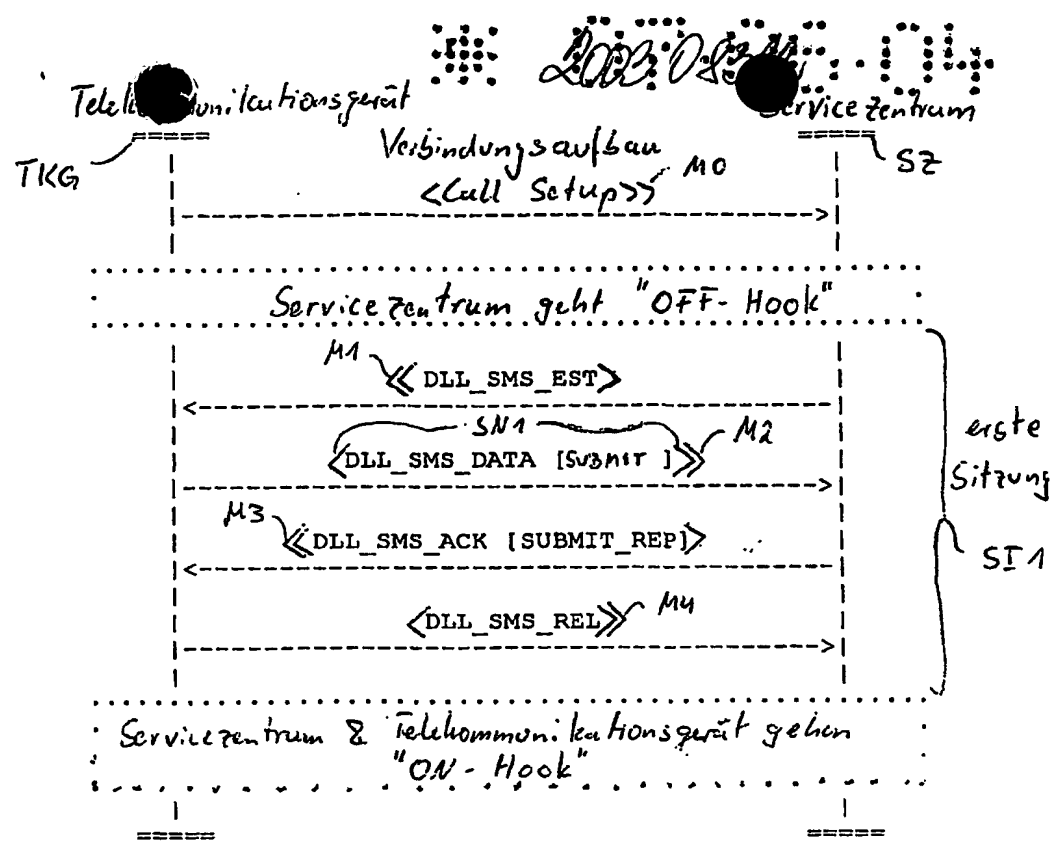 2003 08
Telekommunikationsgerät
Servicezentrum
=====
=====
TKG
SZ
Verbindungsaufbau
<Call Setup>>
M0
Servicezentrum geht "OFF-Hook"
M1
<< DLL_SMS_EST>
SN1
<DLL_SMS_DATA [SUBMIT ]>>
M2
erste
Sitzung
M3
<<DLL_SMS_ACK [SUBMIT_REP]>
SI1
<DLL_SMS_REL>>
M4
Servicezentrum & Telekommunikationsgerät gehen
"ON-Hook"
=====
=====